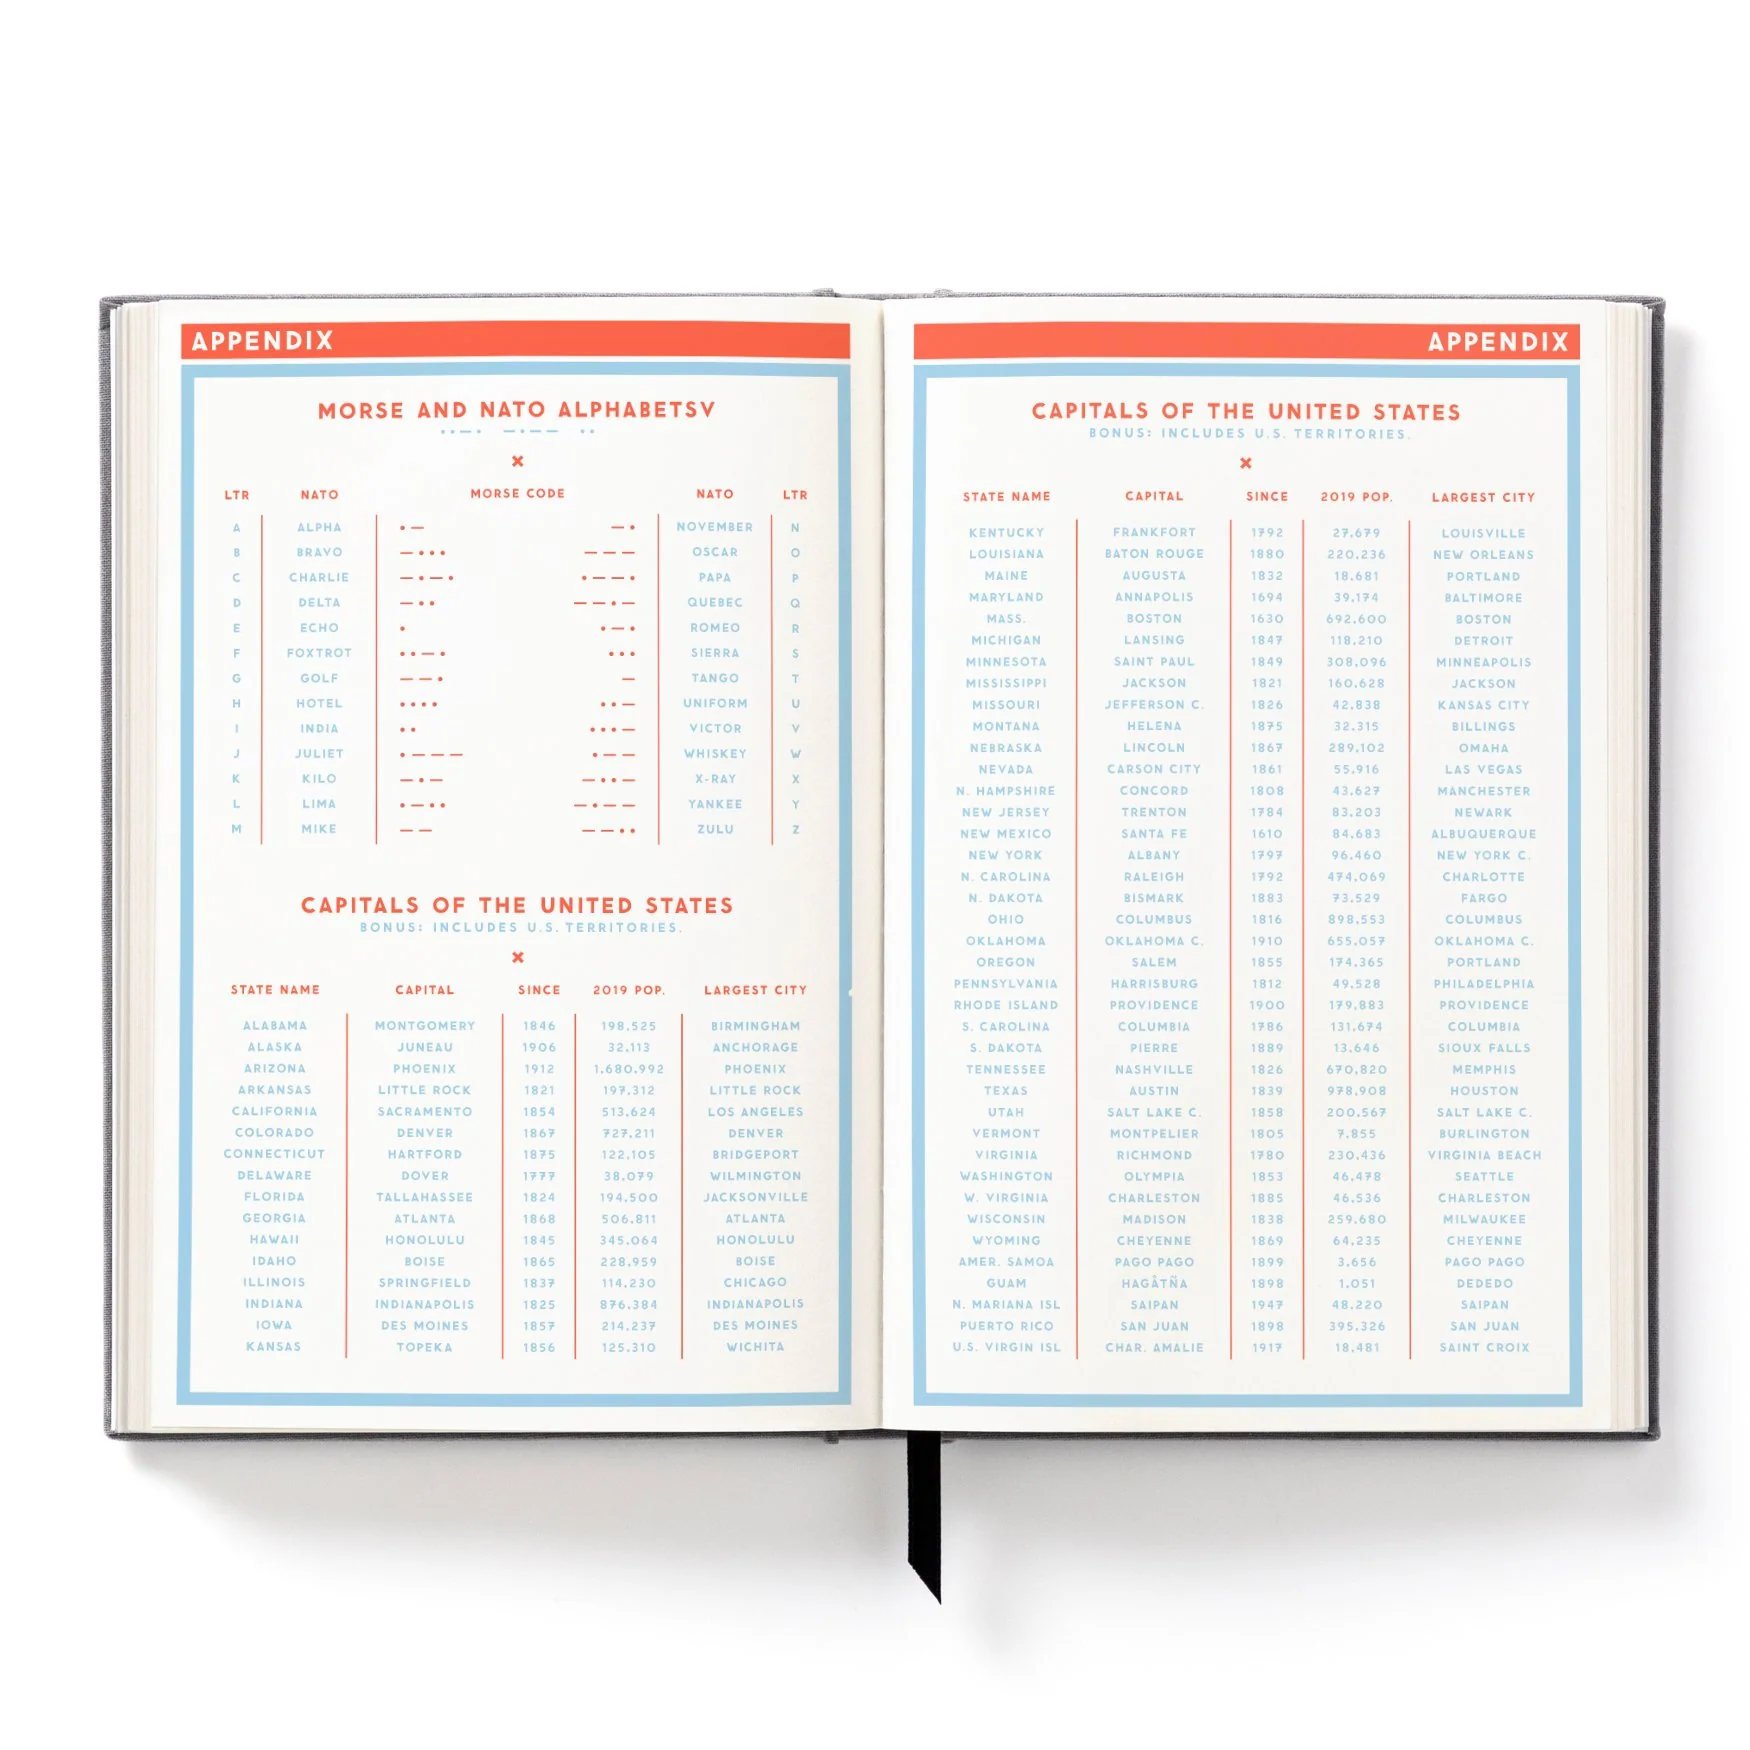 APPENDIX
MORSE AND NATO ALPHABETSV
··—· —·—— ··
×
LTR NATO MORSE CODE NATO LTR
A ALPHA ·— —· NOVEMBER N
B BRAVO —··· ——— OSCAR O
C CHARLIE —·—· ·——· PAPA P
D DELTA —·· ——·— QUEBEC Q
E ECHO · ·—· ROMEO R
F FOXTROT ··—· ··· SIERRA S
G GOLF ——· — TANGO T
H HOTEL ···· ··— UNIFORM U
I INDIA ·· ···— VICTOR V
J JULIET ·——— ·—— WHISKEY W
K KILO —·— —··— X-RAY X
L LIMA ·—·· —·—— YANKEE Y
M MIKE —— ——·· ZULU Z
CAPITALS OF THE UNITED STATES
BONUS: INCLUDES U.S. TERRITORIES.
×
STATE NAME CAPITAL SINCE 2019 POP. LARGEST CITY
ALABAMA MONTGOMERY 1846 198,525 BIRMINGHAM
ALASKA JUNEAU 1906 32,113 ANCHORAGE
ARIZONA PHOENIX 1912 1,680,992 PHOENIX
ARKANSAS LITTLE ROCK 1821 197,312 LITTLE ROCK
CALIFORNIA SACRAMENTO 1854 513,624 LOS ANGELES
COLORADO DENVER 1867 727,211 DENVER
CONNECTICUT HARTFORD 1875 122,105 BRIDGEPORT
DELAWARE DOVER 1777 38,079 WILMINGTON
FLORIDA TALLAHASSEE 1824 194,500 JACKSONVILLE
GEORGIA ATLANTA 1868 506,811 ATLANTA
HAWAII HONOLULU 1845 345,064 HONOLULU
IDAHO BOISE 1865 228,959 BOISE
ILLINOIS SPRINGFIELD 1837 114,230 CHICAGO
INDIANA INDIANAPOLIS 1825 876,384 INDIANAPOLIS
IOWA DES MOINES 1857 214,237 DES MOINES
KANSAS TOPEKA 1856 125,310 WICHITA
APPENDIX
CAPITALS OF THE UNITED STATES
BONUS: INCLUDES U.S. TERRITORIES.
×
STATE NAME CAPITAL SINCE 2019 POP. LARGEST CITY
KENTUCKY FRANKFORT 1792 27,679 LOUISVILLE
LOUISIANA BATON ROUGE 1880 220,236 NEW ORLEANS
MAINE AUGUSTA 1832 18,681 PORTLAND
MARYLAND ANNAPOLIS 1694 39,174 BALTIMORE
MASS. BOSTON 1630 692,600 BOSTON
MICHIGAN LANSING 1847 118,210 DETROIT
MINNESOTA SAINT PAUL 1849 308,096 MINNEAPOLIS
MISSISSIPPI JACKSON 1821 160,628 JACKSON
MISSOURI JEFFERSON C. 1826 42,838 KANSAS CITY
MONTANA HELENA 1875 32,315 BILLINGS
NEBRASKA LINCOLN 1867 289,102 OMAHA
NEVADA CARSON CITY 1861 55,916 LAS VEGAS
N. HAMPSHIRE CONCORD 1808 43,627 MANCHESTER
NEW JERSEY TRENTON 1784 83,203 NEWARK
NEW MEXICO SANTA FE 1610 84,683 ALBUQUERQUE
NEW YORK ALBANY 1797 96,460 NEW YORK C.
N. CAROLINA RALEIGH 1792 474,069 CHARLOTTE
N. DAKOTA BISMARK 1883 73,529 FARGO
OHIO COLUMBUS 1816 898,553 COLUMBUS
OKLAHOMA OKLAHOMA C. 1910 655,057 OKLAHOMA C.
OREGON SALEM 1855 174,365 PORTLAND
PENNSYLVANIA HARRISBURG 1812 49,528 PHILADELPHIA
RHODE ISLAND PROVIDENCE 1900 179,883 PROVIDENCE
S. CAROLINA COLUMBIA 1786 131,674 COLUMBIA
S. DAKOTA PIERRE 1889 13,646 SIOUX FALLS
TENNESSEE NASHVILLE 1826 670,820 MEMPHIS
TEXAS AUSTIN 1839 978,908 HOUSTON
UTAH SALT LAKE C. 1858 200,567 SALT LAKE C.
VERMONT MONTPELIER 1805 7,855 BURLINGTON
VIRGINIA RICHMOND 1780 230,436 VIRGINIA BEACH
WASHINGTON OLYMPIA 1853 46,478 SEATTLE
W. VIRGINIA CHARLESTON 1885 46,536 CHARLESTON
WISCONSIN MADISON 1838 259,680 MILWAUKEE
WYOMING CHEYENNE 1869 64,235 CHEYENNE
AMER. SAMOA PAGO PAGO 1899 3,656 PAGO PAGO
GUAM HAGÅTÑA 1898 1,051 DEDEDO
N. MARIANA ISL SAIPAN 1947 48,220 SAIPAN
PUERTO RICO SAN JUAN 1898 395,326 SAN JUAN
U.S. VIRGIN ISL CHAR. AMALIE 1917 18,481 SAINT CROIX